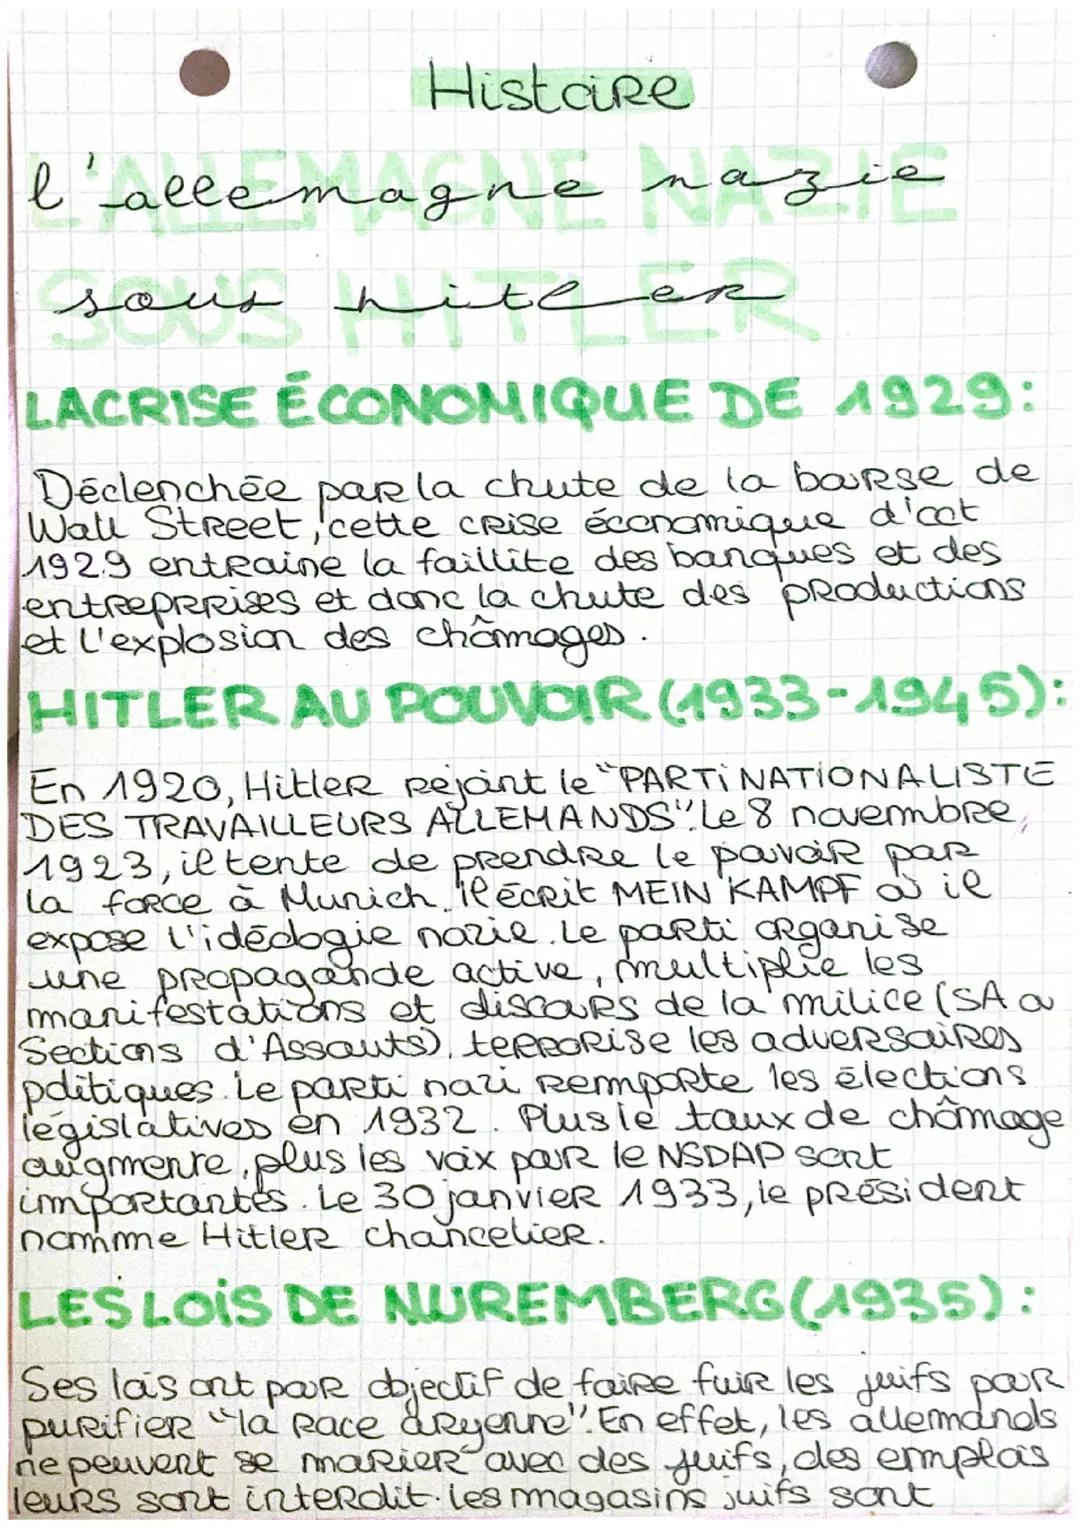 Histoire
l'allemagne nazie
L'ALLEMAGNE NAZIE
sous hitler
SOUS HITLER
LA CRISE ÉCONOMIQUE DE 1929:
Déclenchée par la chute de la bourse de
Wall Street, cette crise économique d'oct
1929 entraine la faillite des banques et des
entreprises et donc la chute des productions
et l'explosion des chômages.
HITLER AU POUVOIR (1933-1945):
En 1920, Hitler rejoint le "PARTI NATIONALISTE
DES TRAVAILLEURS ALLEMANDS". Le 8 novembre
1923, il tente de prendre le pouvoir par
la force à Munich. Il écrit MEIN KAMPF où il
expose l'idéologie nazie. Le parti organise
une propagande active, multiplie les
manifestations et discours de la milice (SA ou
Sections d'Assauts), terrorise les adversaires
politiques. Le parti nazi remporte les élections
législatives en 1932. Plus le taux de chômage
augmente, plus les voix pour le NSDAP sont
importantes. Le 30 janvier 1933, le président
nomme Hitler chancelier.
LES LOIS DE NUREMBERG (1935):
Ses lois ont pour objectif de faire fuir les juifs pour
purifier "la race aryenne". En effet, les allemands
ne peuvent se marier avec des juifs, des emplois
leurs sont interdit. Les magasins juifs sont